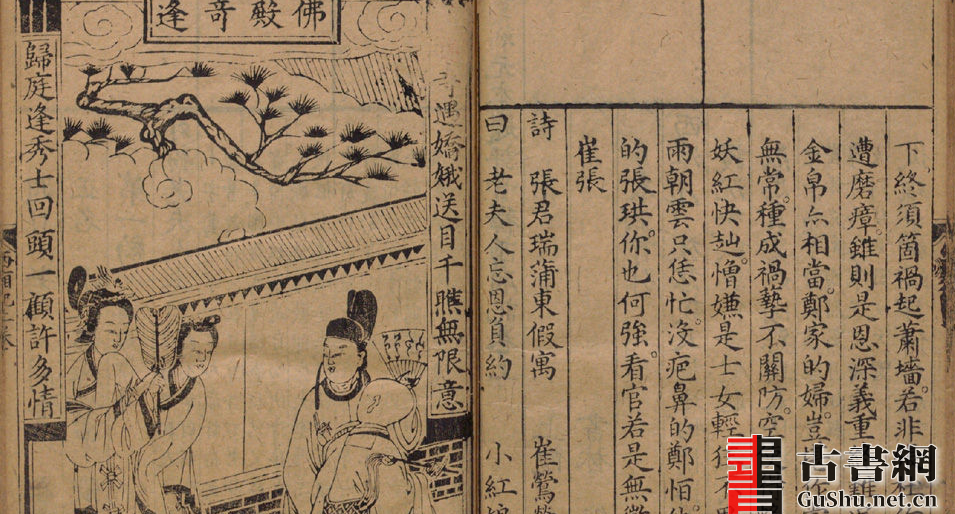 下終須箇禍起蕭墻。若非
遭磨瘴。雖則是恩深義重
金帛亦相當。鄭家的婦。豈
無常。種成禍摯不關防。空
妖紅快訕。憎嫌是士女輕
雨朝雲只恁忙。沒疤鼻的鄭怕
的張珙。你也何強。看官若是無
崔張
詩 張君瑞蒲東假寓 崔鶯
曰 老夫人忘恩負約 小紅
佛殿奇逢
奇遇嬌娥送目千瞧無限意
歸庭逢秀士回頭一顧許多情
古書網
GuShu.net.cn